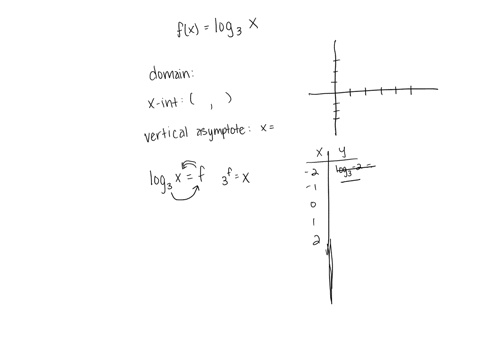 f(x) = log₃ x
domain:
x-int: ( , )
vertical asymptote: x=
log₃ x = f 3^f = x
x y
-2 log₃ -2 =
-1
0
1
2